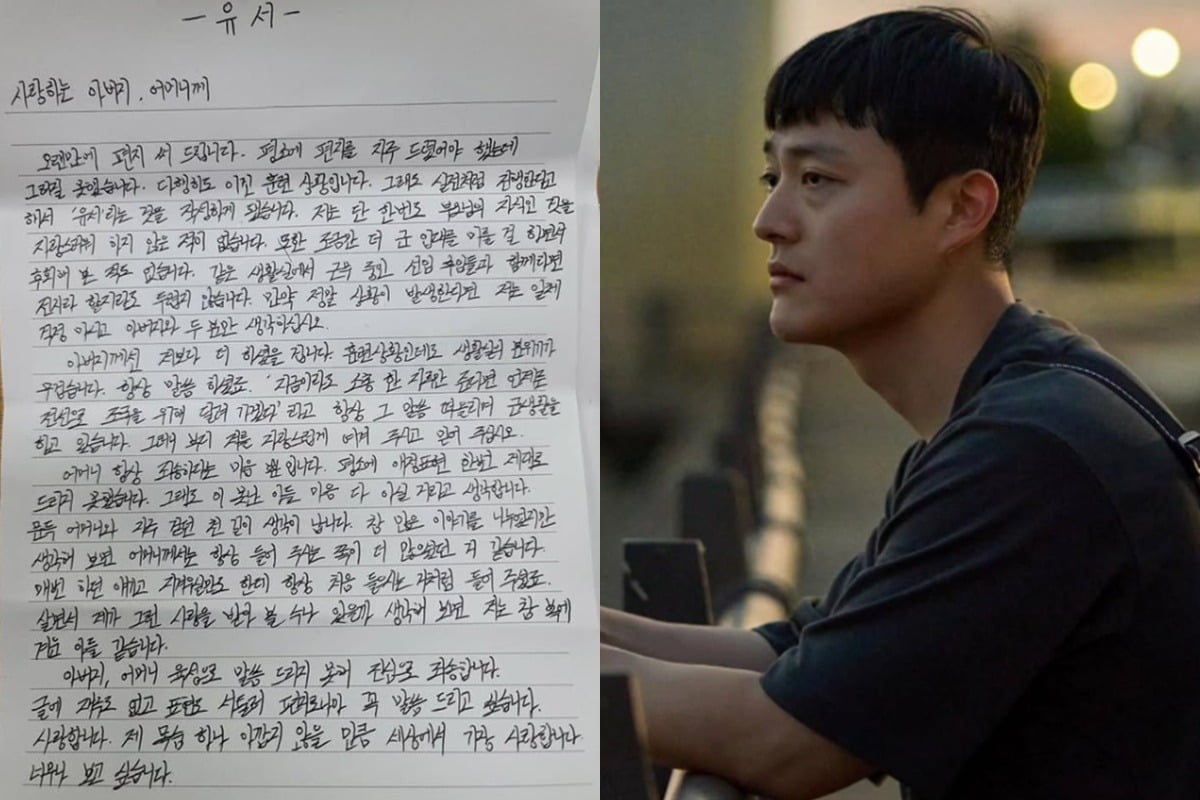 - 유 서 -
사랑하는 아버지, 어머니께
오랜만에 편지 써 드립니다. 평소에 편지를 자주 드렸어야 했는데
그러질 못했습니다. 다행히도 이건 훈련 상황입니다. 그래도 실전처럼 진행한다고
해서 '유서'라는 것을 작성하게 됐습니다. 저는 단 한번도 부모님의 자식인 것을
자랑스러워 하지 않은 적이 없습니다. 또한 조금만 더 군 입대를 미룰 걸 하면서
후회해 본 적도 없습니다. 같은 생활실에서 근무 중인 선임 후임들과 함께라면
전시라 할지라도 두렵지 않습니다. 만약 정말 상황이 발생한다면 저는 일체
걱정 마시고 아버지와 두 분만 생각하십시오.
아버지께선 저보다 더 하셨을 겁니다. 훈련상황인데도 생활실의 분위기가
무겁습니다. 항상 말씀 하셨죠. '지금이라도 소총 한 자루만 준다면 언제든
전선으로 조국을 위해 달려 가겠다' 라고 항상 그 말씀 떠올리며 군생활을
하고 있습니다. 그러니 부디 저를 자랑스럽게 여겨 주시고 믿어 주십시오.
어머니 항상 죄송하다는 마음 뿐입니다. 평소에 애정표현 한번 제대로
드리지 못했습니다. 그래도 이 못난 아들 마음 다 아실 거라고 생각합니다.
문득 어머니와 자주 걷던 천 길이 생각이 납니다. 참 많은 이야기를 나누었지만
생각해 보면 어머니께서는 항상 들어 주시는 쪽이 더 많으셨던 거 같습니다.
매번 하던 얘기고 지겨우실만도 한데 항상 처음 들으시는 것처럼 들어 주셨죠.
살면서 제가 그런 사랑을 받아 볼 수나 있을까 생각해 보면 저는 참 복에
겨운 아들 같습니다.
아버지, 어머니 육성으로 말씀 드리지 못해 진심으로 죄송합니다.
글에 재주도 없고 표현도 서툴러 투박하나마 꼭 말씀 드리고 싶습니다.
사랑합니다. 제 목숨 하나 아깝지 않을 만큼 세상에서 가장 사랑합니다
너무나 보고 싶습니다.